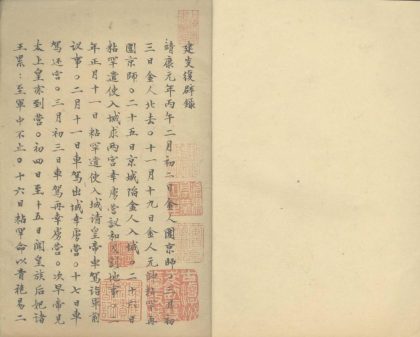 建炎復辟錄
靖康元年丙午二月初二日金人圍京師。三月初
三日金人北去。十一月十九日金人元帥粘罕再
圍京師。二十五京城陷金人入城。二十六日
粘罕遣使入城求兩宮幸虜營議和割地事。
年正月十一日粘罕遣使入城請皇帝車駕詣軍前
議事。二月十一日車駕出城幸虜營。十七日車
駕還宮。三月初三日車駕再幸虜營。次早帝見
太上皇亦到營。初四日至十五日聞皇族后妃諸
王累至軍中不止。十六日粘罕命以青袍易二